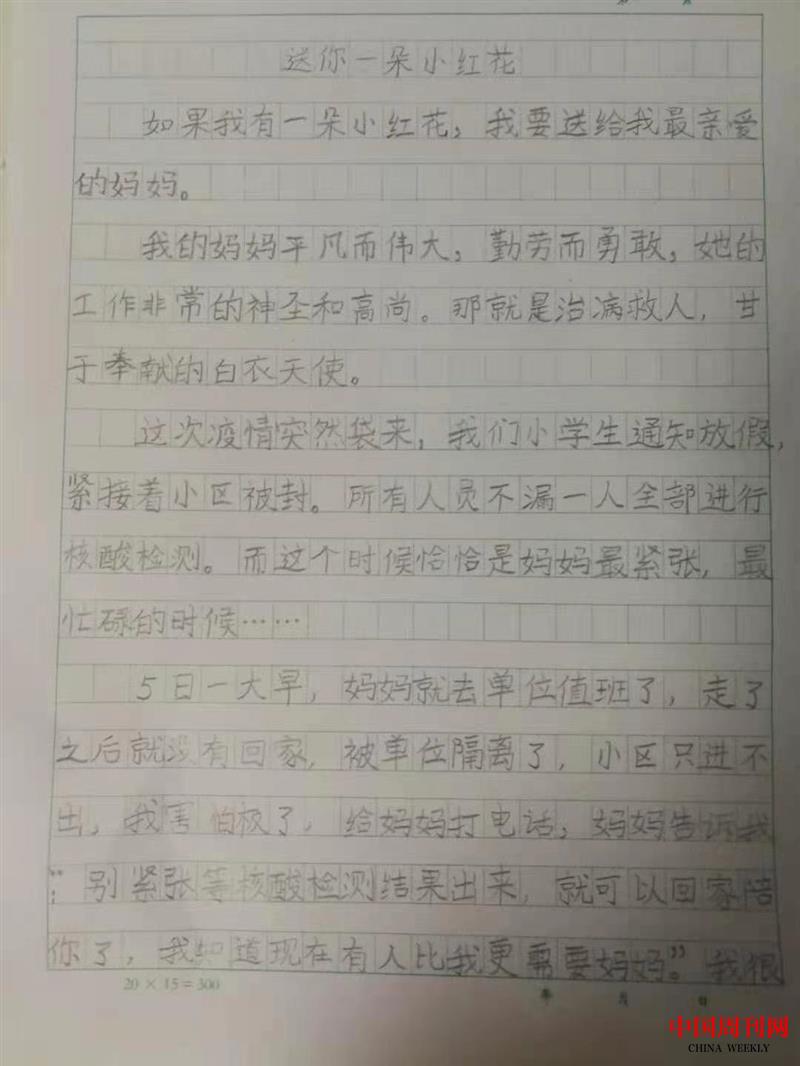 送你一朵小红花
如果我有一朵小红花，我要送给我最亲爱
的妈妈。
我的妈妈平凡而伟大，勤劳而勇敢，她的
工作非常的神圣和高尚。那就是治病救人，甘
于奉献的白衣天使。
这次疫情突然袋来，我们小学生通知放假，
紧接着小区被封。所有人员不漏一人全部进行
核酸检测。而这个时候恰恰是妈妈最紧张，最
忙碌的时候……
5日一大早，妈妈就去单位值班了，走了
之后就没有回家，被单位隔离了，小区只进不
出，我害怕极了，给妈妈打电话，妈妈告诉我
：“别紧张等核酸检测结果出来，就可以回家陪
你了，我知道现在有人比我更需要妈妈。”我很
20×15=300
年 月 日
中国周刊网
CHINA WEEKLY